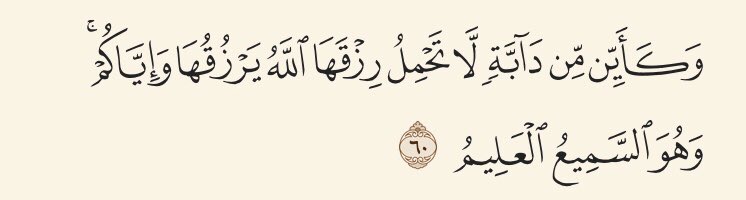 وَكَأَيِّن مِّن دَآبَّةٍ لَّا تَحْمِلُ رِزْقَهَا ٱللَّهُ يَرْزُقُهَا وَإِيَّاكُمْ ۚ
وَهُوَ ٱلسَّمِيعُ ٱلْعَلِيمُ ٦٠